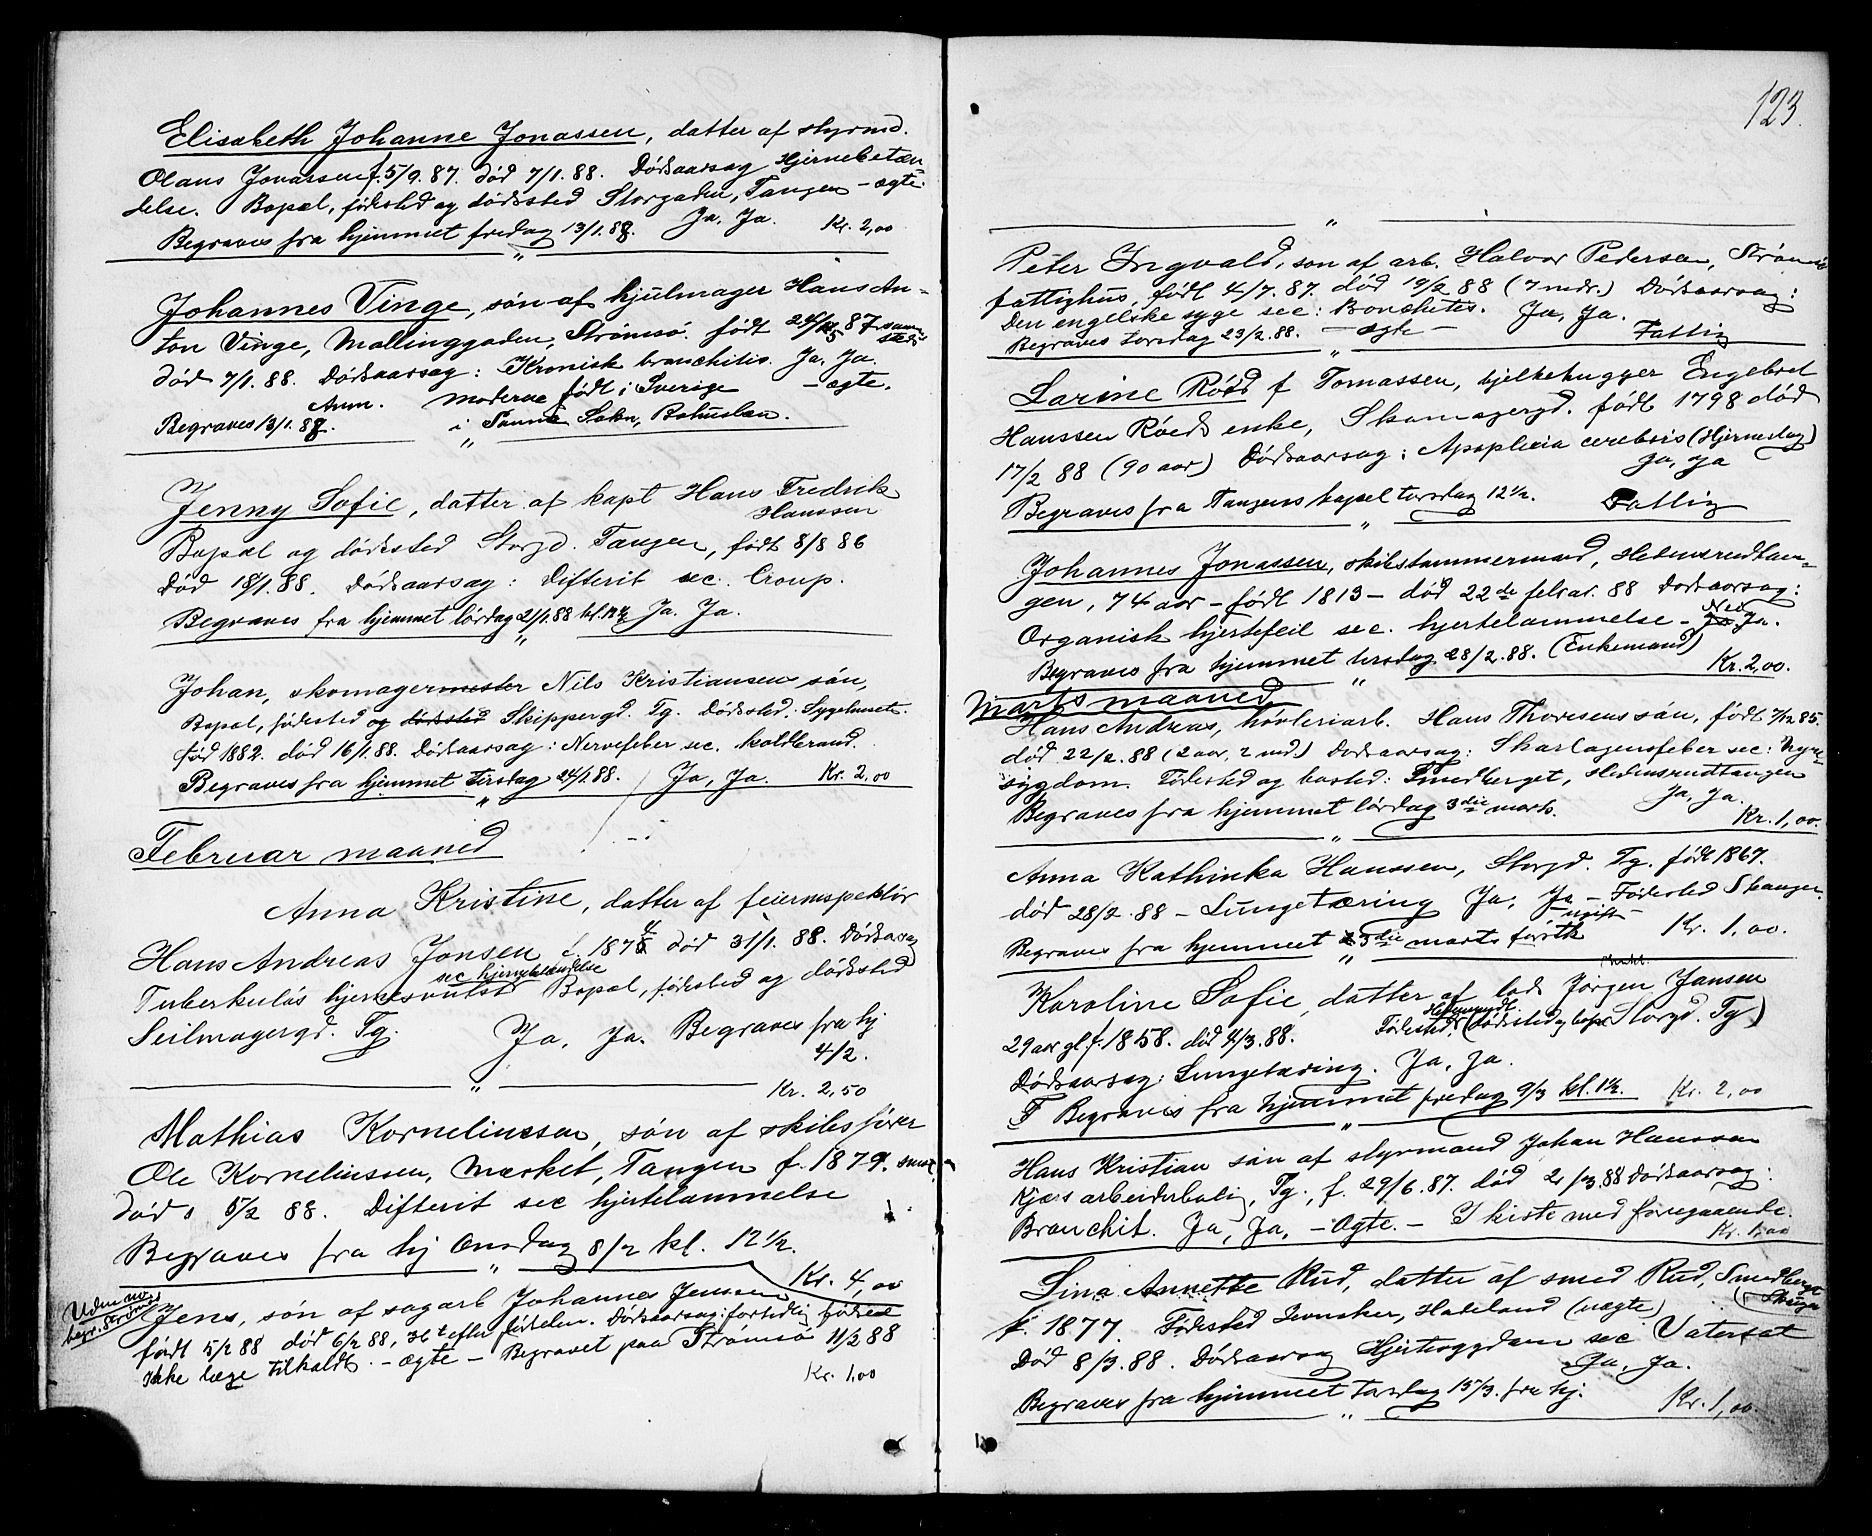 Elisabeth Johanne Jonassen, datter af styrmd.
Olaus Jonassen f. 5/9. 87. død 7/1. 88. Dødsaarsag Hjernebetæn-
delse. Bopæl, fødested og dødssted Storgaden, Tangen – ægte.
Begraves fra hjemmet fredag 13/1. 88. Ja, Ja. Kr. 2,00
Johannes Vinge, søn af hjulmager Hans An-
ton Vinge, Mallinggaden, Strømsø. født 87 samme
sted
død 7/1. 88. Dødsaarsag: Kronisk bronchitis. Ja. Ja.
Anm. moderne født i Sverige – ægte.
Begraves 13/1. 88. i Sanne Sokn, Bohuslen.
Jenny Sofie, datter af kapt Hans Fredrik
Hanssen
Bopæl og dødssted Storgd. Tangen, født 8/8 86
Død 18/1. 88. Dødsaarsag: Difterit sec. Croup.
Begraves fra hjemmet lørdag 21/1. 88 kl. Ja. Ja.
Johan, skomagermester Nils Kristiansens søn,
Bopæl, fødested og dødssted Skippergd. Tg. Dødssted: Sygehuset
Født 1882. død 16/1. 88. Dødsaarsag: Nervefeber sec. koldbrand.
Begraves fra hjemmet Tirsdag 24/1. 88. Ja, Ja. Kr. 2,00
Februar maaned
Anna Kristine, datter af feierinspektør
Hans Andreas Jonsen f. 1874 død 31/1. 88. Dødsaarsag
sec hjernebetændelse
Tuberkuløs Bopæl, fødested og dødssted
Seilmagergd. Tg. Ja, Ja. Begraves fra hj
4/2.
Kr. 2,50
Mathias Kornelinssen, søn af skibsfører
Ole Kornelinssen, Mærket, Tangen f. 1879.
død 5/2 88. Difterit sec hjertelammelse
Begraves fra hj Onsdag 8/2 kl. 12½.
Kr. 4,00
Uden
begr. Strømsø
Jens, søn af sagarb Johannes Jensen
født 5/2 88 død 6/2 88, 36 t efter fødselen. Dødsaarsag: fortidlig fødsel
Ikke læge tilkaldt. – ægte – Begravet paa Strømsø 11/2 88
Kr. 1,00
123.
Peter Ingvald, søn af arb. Halvor Pedersen, Strømsø
fattighus, født 4/7. 87. død 19/2 88 (7 mdr.) Dødsaarsag:
Den engelske syge sec: Bronchites. Ja, Ja.
Begraves torsdag 23/2. 88. – ægte – Fattig
Larine Röed f Tomassen, hjelkehugger Engebret
Hanssen Röeds enke, Skomagergd. født 1798 død
17/2 88 (90 aar) Dødsaarsag: Apoplexia cerebris (Hjerneslag)
Ja, Ja
Begraves fra Tangens kapel torsdag 12½. Fattig
Johannes Jonassen, skibstømmermand, Hedensrudtan-
gen, 74 aar – født 1813 – død 22de februar. 88 Dødsaarsag:
Organisk hjertefeil sec. hjertelammelse – Nei Ja.
Begraves fra hjemmet tirsdag 28/2. 88. (Enkemand) Kr. 2,00.
Marts maaned
Hans Andreas, høvleriarb. Hans Thoresens søn, født 7/12 85.
død 22/2. 88 (2 aar, 2 md.) Dødsaarsag: Skarlagensfeber sec: Nyre-
sygdom. Fødested og bosted: Smedberget, Hedensrudtangen
Ja, Ja.
Begraves fra hjemmet lørdag 3die marts. Kr. 1,00.
Anna Kathinka Hanssen, Storgd. Tg. født 1867.
død 28/2. 88 – Lungetæring Ja, Ja – Fødested Skauger.
ugift –
Begraves fra hjemmet 3die marts Kr. 1,00.
Karoline Sofie, datter af lods Jørgen Jansen
29 aar gl. f. 1858. død 4/3. 88. Fødested (dødssted og bopæl Storgd. Tg)
Dødsaarsag: Lungetæring. Ja, Ja.
Begraves fra hjemmet fredag 9/3 kl. 1½. Kr. 2,00
Hans Kristian søn af styrmand Johan Hanssen
Kjærs arbeiderbolig, Tg., f. 29/6. 87. død 2/3. 88 Dødsaarsag:
Bronchit. Ja, Ja, – Ægte. – I kiste med foregaaende.
Kr. 1,00
Lina Annette Rud, datter af smed Rud, Smedberget
f. 1877. Fødested Jevnaker, Hadeland (uægte)
Død 8/3. 88. Dødsaarsag Hjertesygdom sec Vatersot
Ja, Ja.
Begraves fra hjemmet torsdag 15/3. fra hj. Kr. 1,00